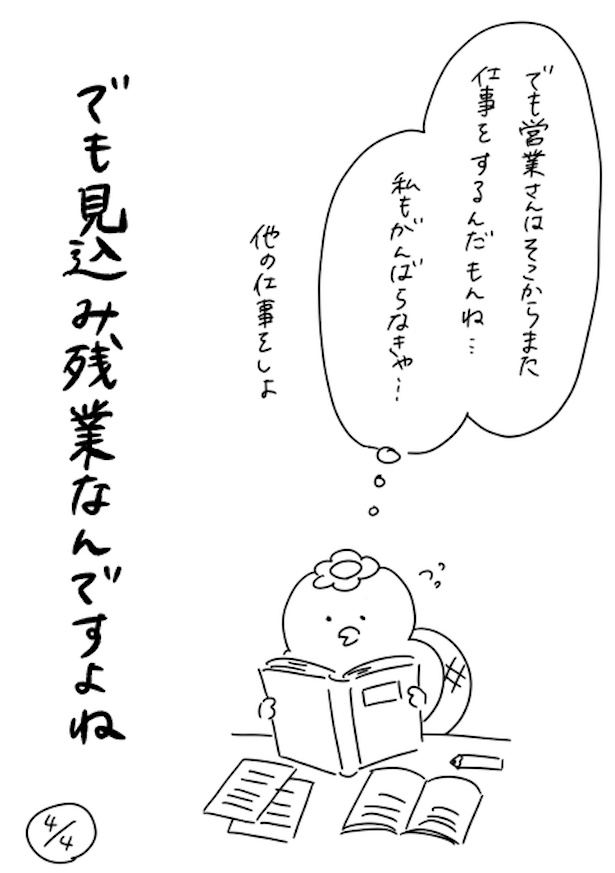 でも営業さんはそこからまた
仕事をするんだもんね…
私もがんばらなきゃ…
他の仕事をしよ
でも見込み残業なんですよね
4/4